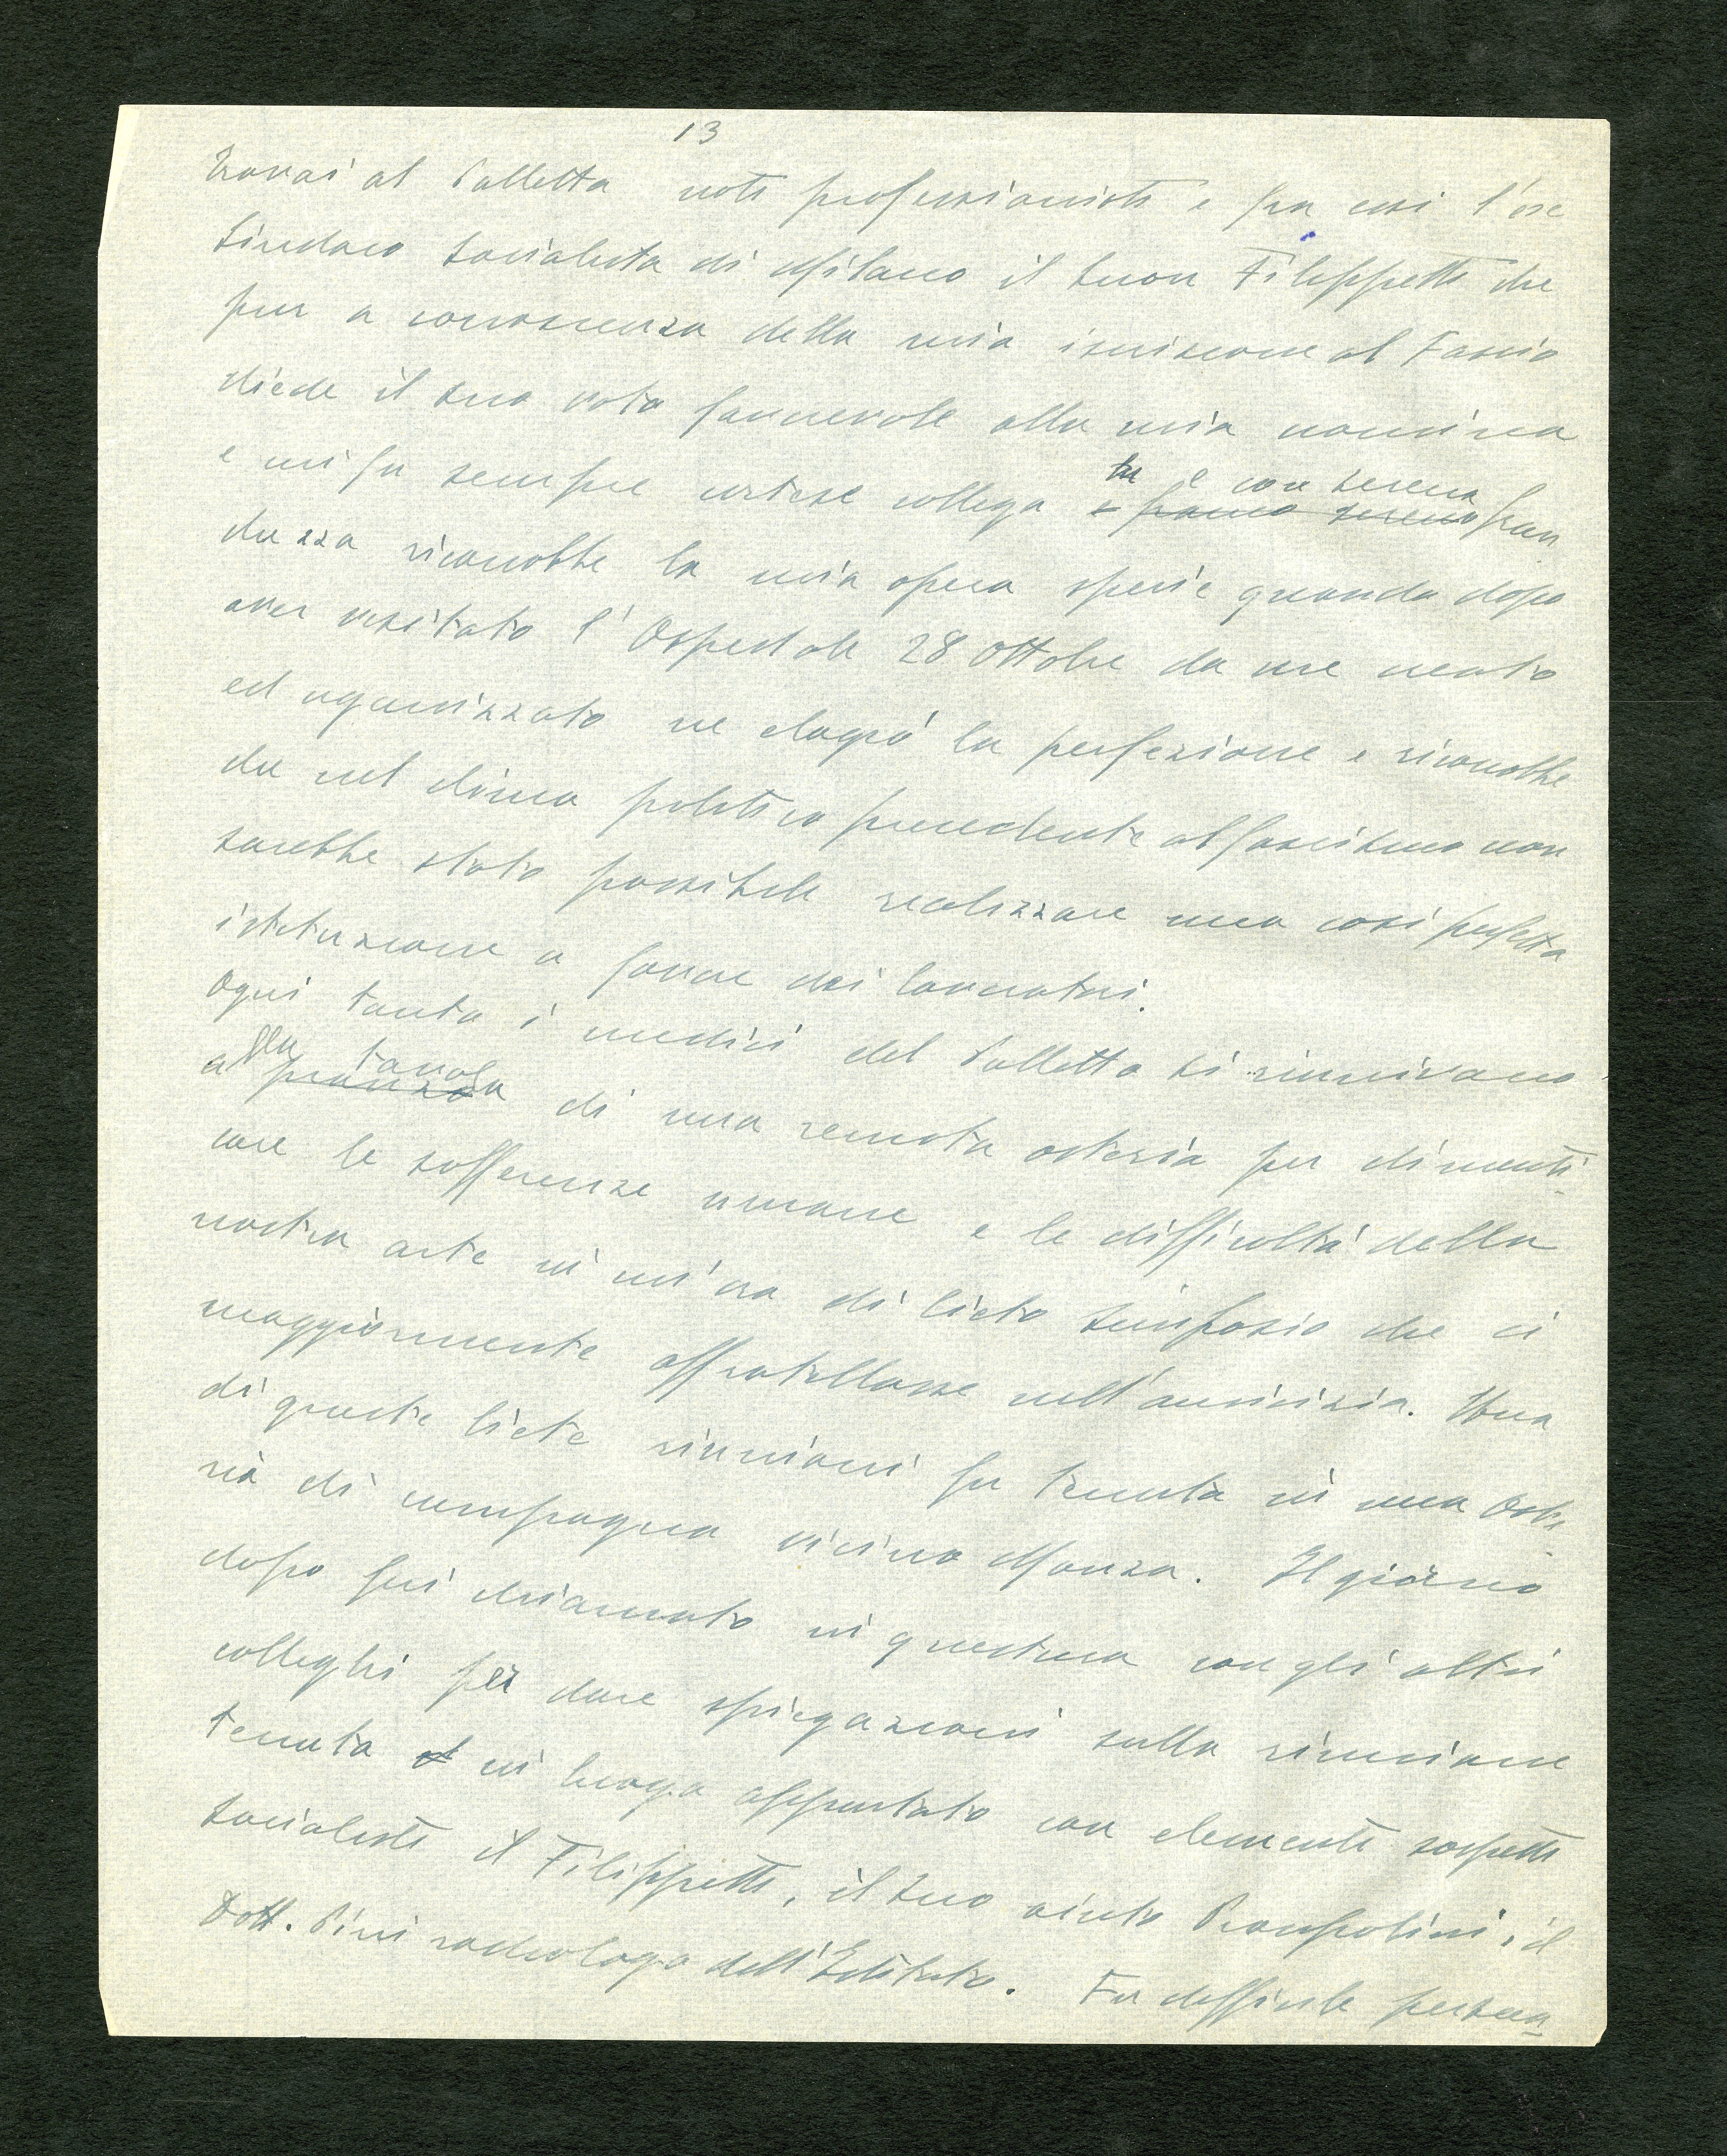 13
Trovai al Palletta noti professionisti e fra essi l'ex
Sindaco socialista di Milano il buon Filippetti che
pur a conoscenza della mia iscrizione al Fascio
diede il suo voto favorevole alla mia nomina
e mi fu sempre cortese collega e con serena fran
chezza riconobbe la mia opera specie quando dopo
aver visitato l'Ospedale 28 Ottobre da me creato
ed organizzato ne elogiò la perfezione e riconobbe
che nel clima politico precedente al fascismo non
sarebbe stato possibile realizzare una così perfetta
istituzione a favore dei lavoratori.
Ogni tanto i medici del Palletta si riunivano
alla tavola di una remota osteria per dimenti-
care le sofferenze umane e le difficoltà della
nostra arte in un'ora di lieto simposio che ci
maggiormente affratellasse nell'amicizia. Una
di queste liete riunioni fu tenuta in una Oste-
ria di campagna vicino Monza. Il giorno
dopo fui chiamato in questura con gli altri
colleghi per dare spiegazioni sulla riunione
tenuta in luogo appartato con elementi sospetti
socialisti il Filippetti, il suo aiuto Prampolini, il
Dott. Pini radiologo dell'Istituto. Fu difficile persua